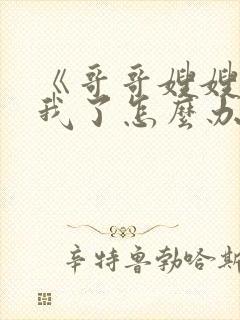 《哥哥嫂嫂
我了怎麼办
辛特鲁勃哈斯